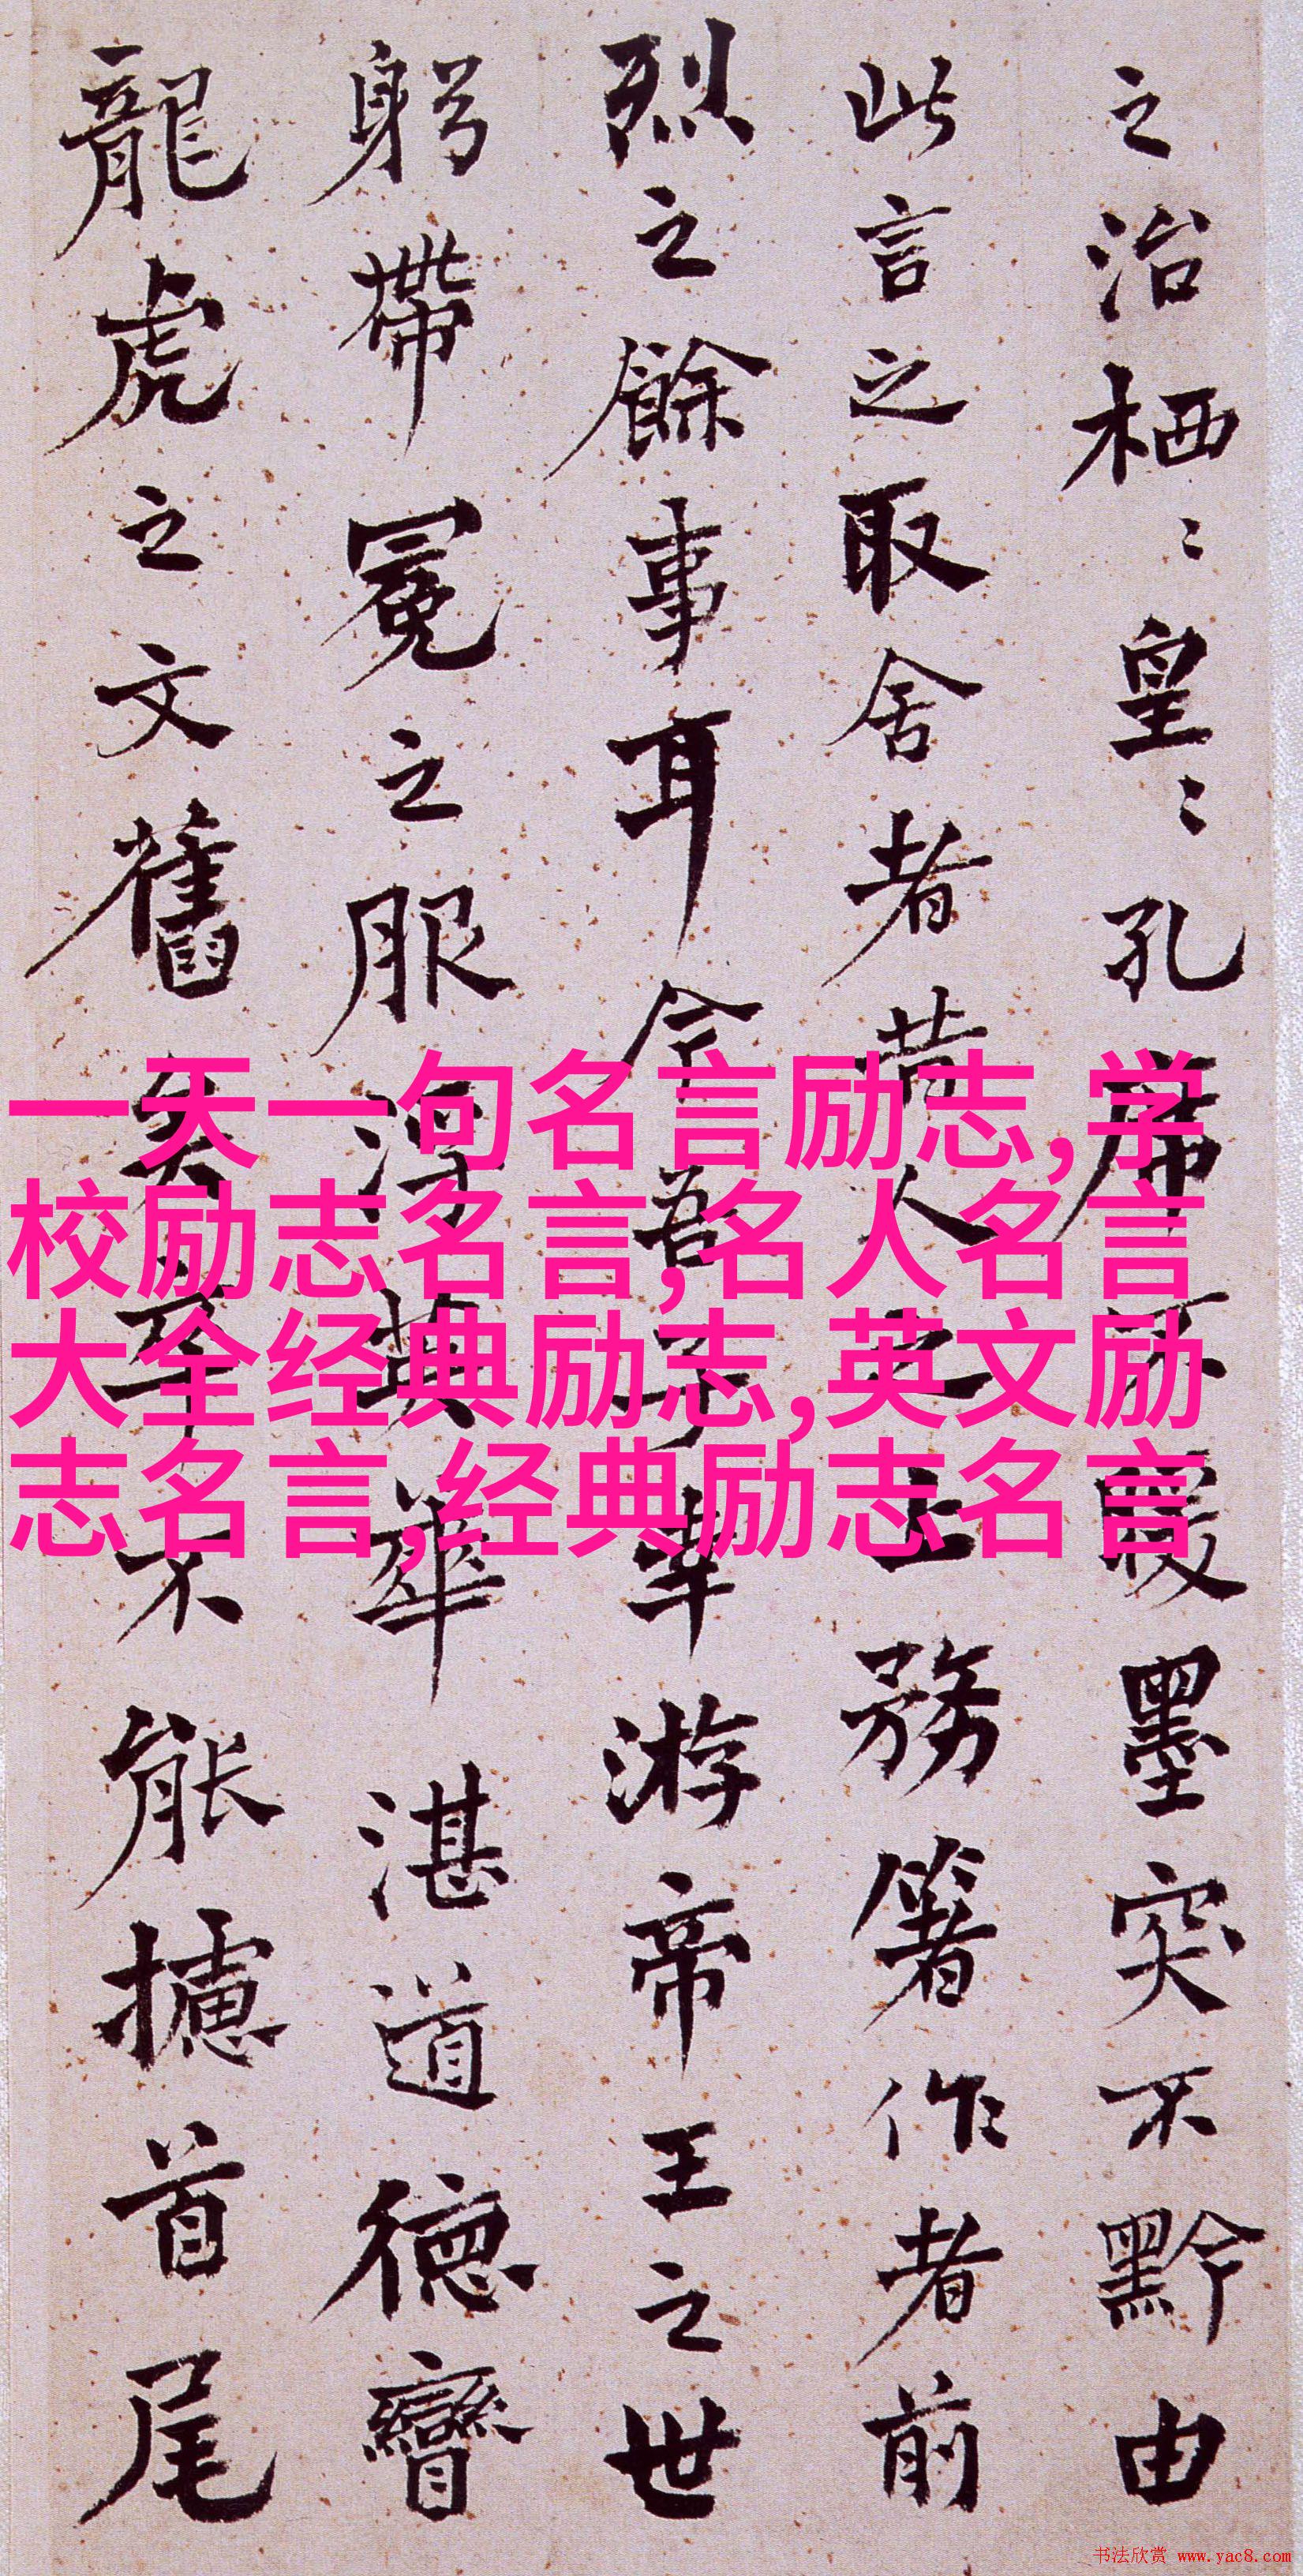 之治栖〻皇〻孔席不暖墨突不黔由
此言之取舍者昔人之上務箸作者前
烈之餘事耳今吾子幸游帝王之世
躬帶冕之服浮英華湛道德矕
龍虎之文舊矣卒不能攄首尾
一天一句名言励志,学
校励志名言,名人名言
大全经典励志,英文励
志名言,经典励志名言
书法欣赏 www.yac8.com